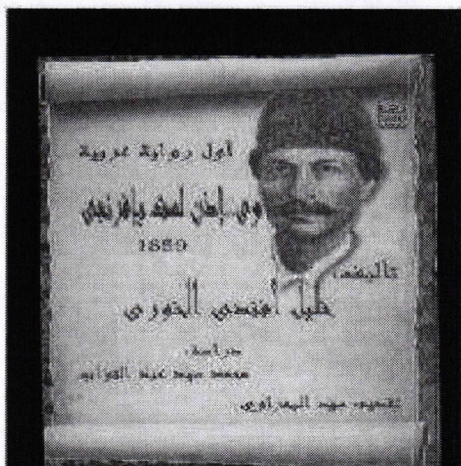 أول رواية عربية
وي. إذن لست بإفرنجي
1859
تأليف:
خليل أفندي الخوري
دراسة:
محمد سيد عبد التواب
تقديم: سيد البحراوي